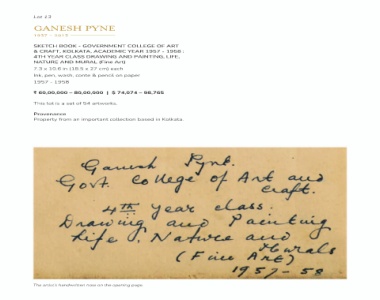 Lot 13
GANESH PYNE
1937 - 2013
SKETCH BOOK - GOVERNMENT COLLEGE OF ART
& CRAFT, KOLKATA, ACADEMIC YEAR 1957 - 1958 :
4TH YEAR CLASS DRAWING AND PAINTING, LIFE,
NATURE AND MURAL (Fine Art)
7.3 x 10.6 in (18.5 x 27 cm) each
Ink, pen, wash, conte & pencil on paper
1957 - 1958
₹ 60,00,000 – 80,00,000 | $ 74,074 – 98,765
This lot is a set of 54 artworks.
Provenance
Property from an important collection based in Kolkata.
Ganesh Pyne.
Govt. College of Art and
Craft.
4th Year class.
Drawing and Painting
Life. Nature and
Murals
(Fine Art)
1957 - 58
The artist's handwritten lines on the opening page.